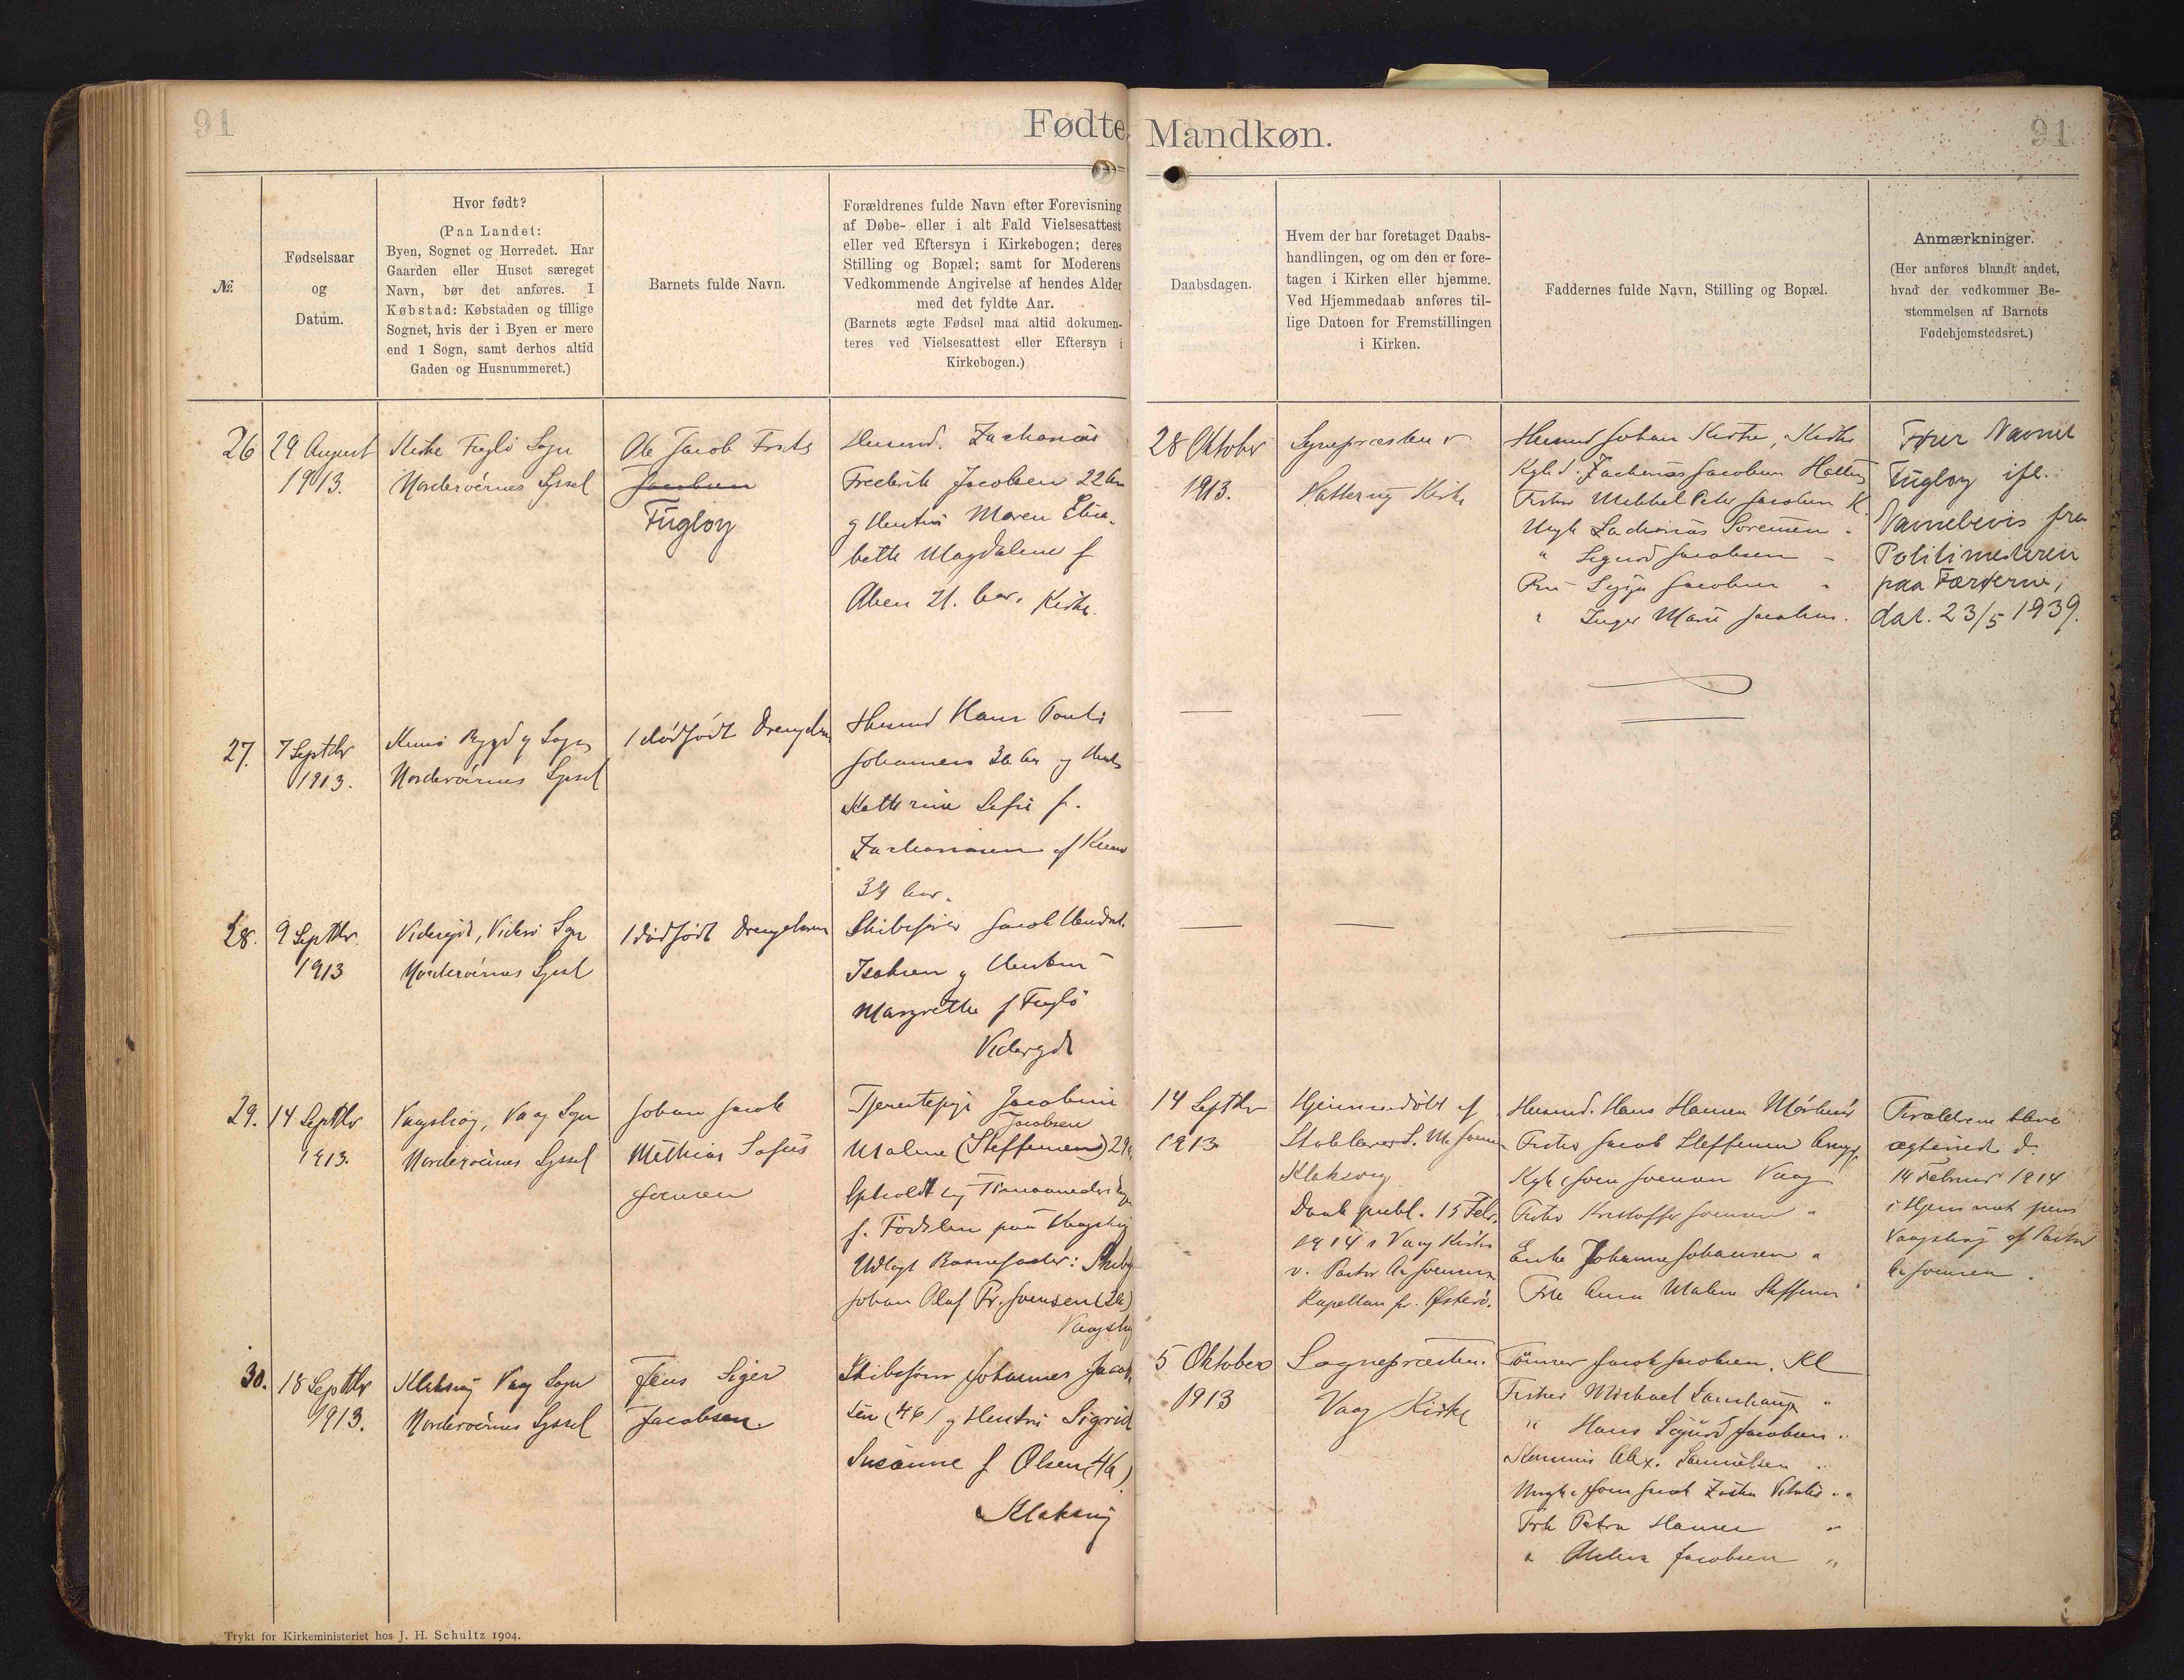 91
Fødte
Mandkøn.
91
№.
Fødselsaar
og
Datum.
Hvor født?
(Paa Landet:
Byen, Sognet og Herredet. Har
Gaarden eller Huset særeget
Navn, bør det anføres. I
Købstad: Købstaden og tillige
Sognet, hvis der i Byen er mere
end 1 Sogn, samt derhos altid
Gaden og Husnummeret.)
Barnets fulde Navn.
Forældrenes fulde Navn efter Forevisning
af Døbe- eller i alt Fald Vielsesattest
eller ved Eftersyn i Kirkebogen; deres
Stilling og Bopæl; samt for Moderens
Vedkommende Angivelse af hendes Alder
med det fyldte Aar.
(Barnets ægte Fødsel maa altid dokumen-
teres ved Vielsesattest eller Eftersyn i
Kirkebogen.)
Daabsdagen.
Hvem der har foretaget Daabs-
handlingen, og om den er fore-
tagen i Kirken eller hjemme.
Ved Hjemmedaab anføres til-
lige Datoen for Fremstillingen
i Kirken.
Faddernes fulde Navn, Stilling og Bopæl.
Anmærkninger.
(Her anføres blandt andet,
hvad der vedkommer Be-
stemmelsen af Barnets
Fødehjemstedsret.)
26
29 August
1913.
Kirke Fuglö Sogn
Norderöernes Syssel
Ole Jacob Frits
Jacobsen
Fugloy
Husmd. Zacharias
Frederik Jacobsen 22
og Hustru Maren Elsa-
beth Magdalene f
21. Kirke.
28 Oktober
1913.
Sognepræsten
Hattervig Kirke
Husmd Johan Kirke, Kirke
Zacharias Jacobsen
Fisker Mikkel Peter Jacobsen K.
Ungk Zacharias Sörensen "
" Sigurd Jacobsen "
Jacobsen "
" Inger Marie Jacobsen.
Fører Navnet
Fugloy ifl.
Navnebevis fra
Politimesteren
paa Færøerne,
dat. 23/5 1939.
27.
7 Septbr
1913.
Kunö Bygd og Sogn
Norderöernes Syssel
1 dödfödt Drengebarn
Husmd Hans Pauli
Johannes 36 og
Kathrine Sofie f.
Zachariasen af Kunö
28.
9 Septbr.
1913
Videreide, Viderö Sogn
Norderöernes Syssel
1 dödfödt Drengebarn
Skibsförer Jacob
Isaksen og Hustru
Margrethe f Fuglö
29.
14 Septbr
1913.
Vaagshøj, Vaag Sogn
Norderöernes Syssel
Johan Jacob
Mathias Sofus
Joensen
Tjenestepige Jacobine
Jacobsen
Malene (Steffensen)
f. Födslen paa Vaagshøj
Udlagt Barnefader:
Johan Olaf Fr. Joensen
14 Septbr
1913
Hjemmedöbt af
Klaksvig
Daab publ. 15 Febr.
1914 i Vaag Kirke
v. Pastor Joensen
Kapellan for Østerö.
Husmd. Hans Hansen
Fisker Jacob Steffensen
Joensen Vaag
Fisker Kristoffer Joensen "
Enke Johanne Johansen "
Frk Anna Malene Steffensen "
Forældrene bleve
ægteviede d.
14 Februar 1914
Vaagshøj af Pastor
Joensen.
30.
18 Septbr
1913.
Klaksvig Vaag Sogn
Norderöernes Syssel
Jens Siger
Jacobsen.
Skibsförer Johannes Jacob-
sen (46) og Hustru Sigrid
Susanne f Olsen (46)
Klaksvig
5 Oktober
1913
Sognepræsten.
Vaag Kirke
Tömrer Jacob Jacobsen, Kl
Fisker Michael "
" Hans Sigurd Jacobsen "
Alex. Samuelsen "
Frk Petra Hansen "
" Jacobsen "
Trykt for Kirkeministeriet hos J. H. Schultz 1904.